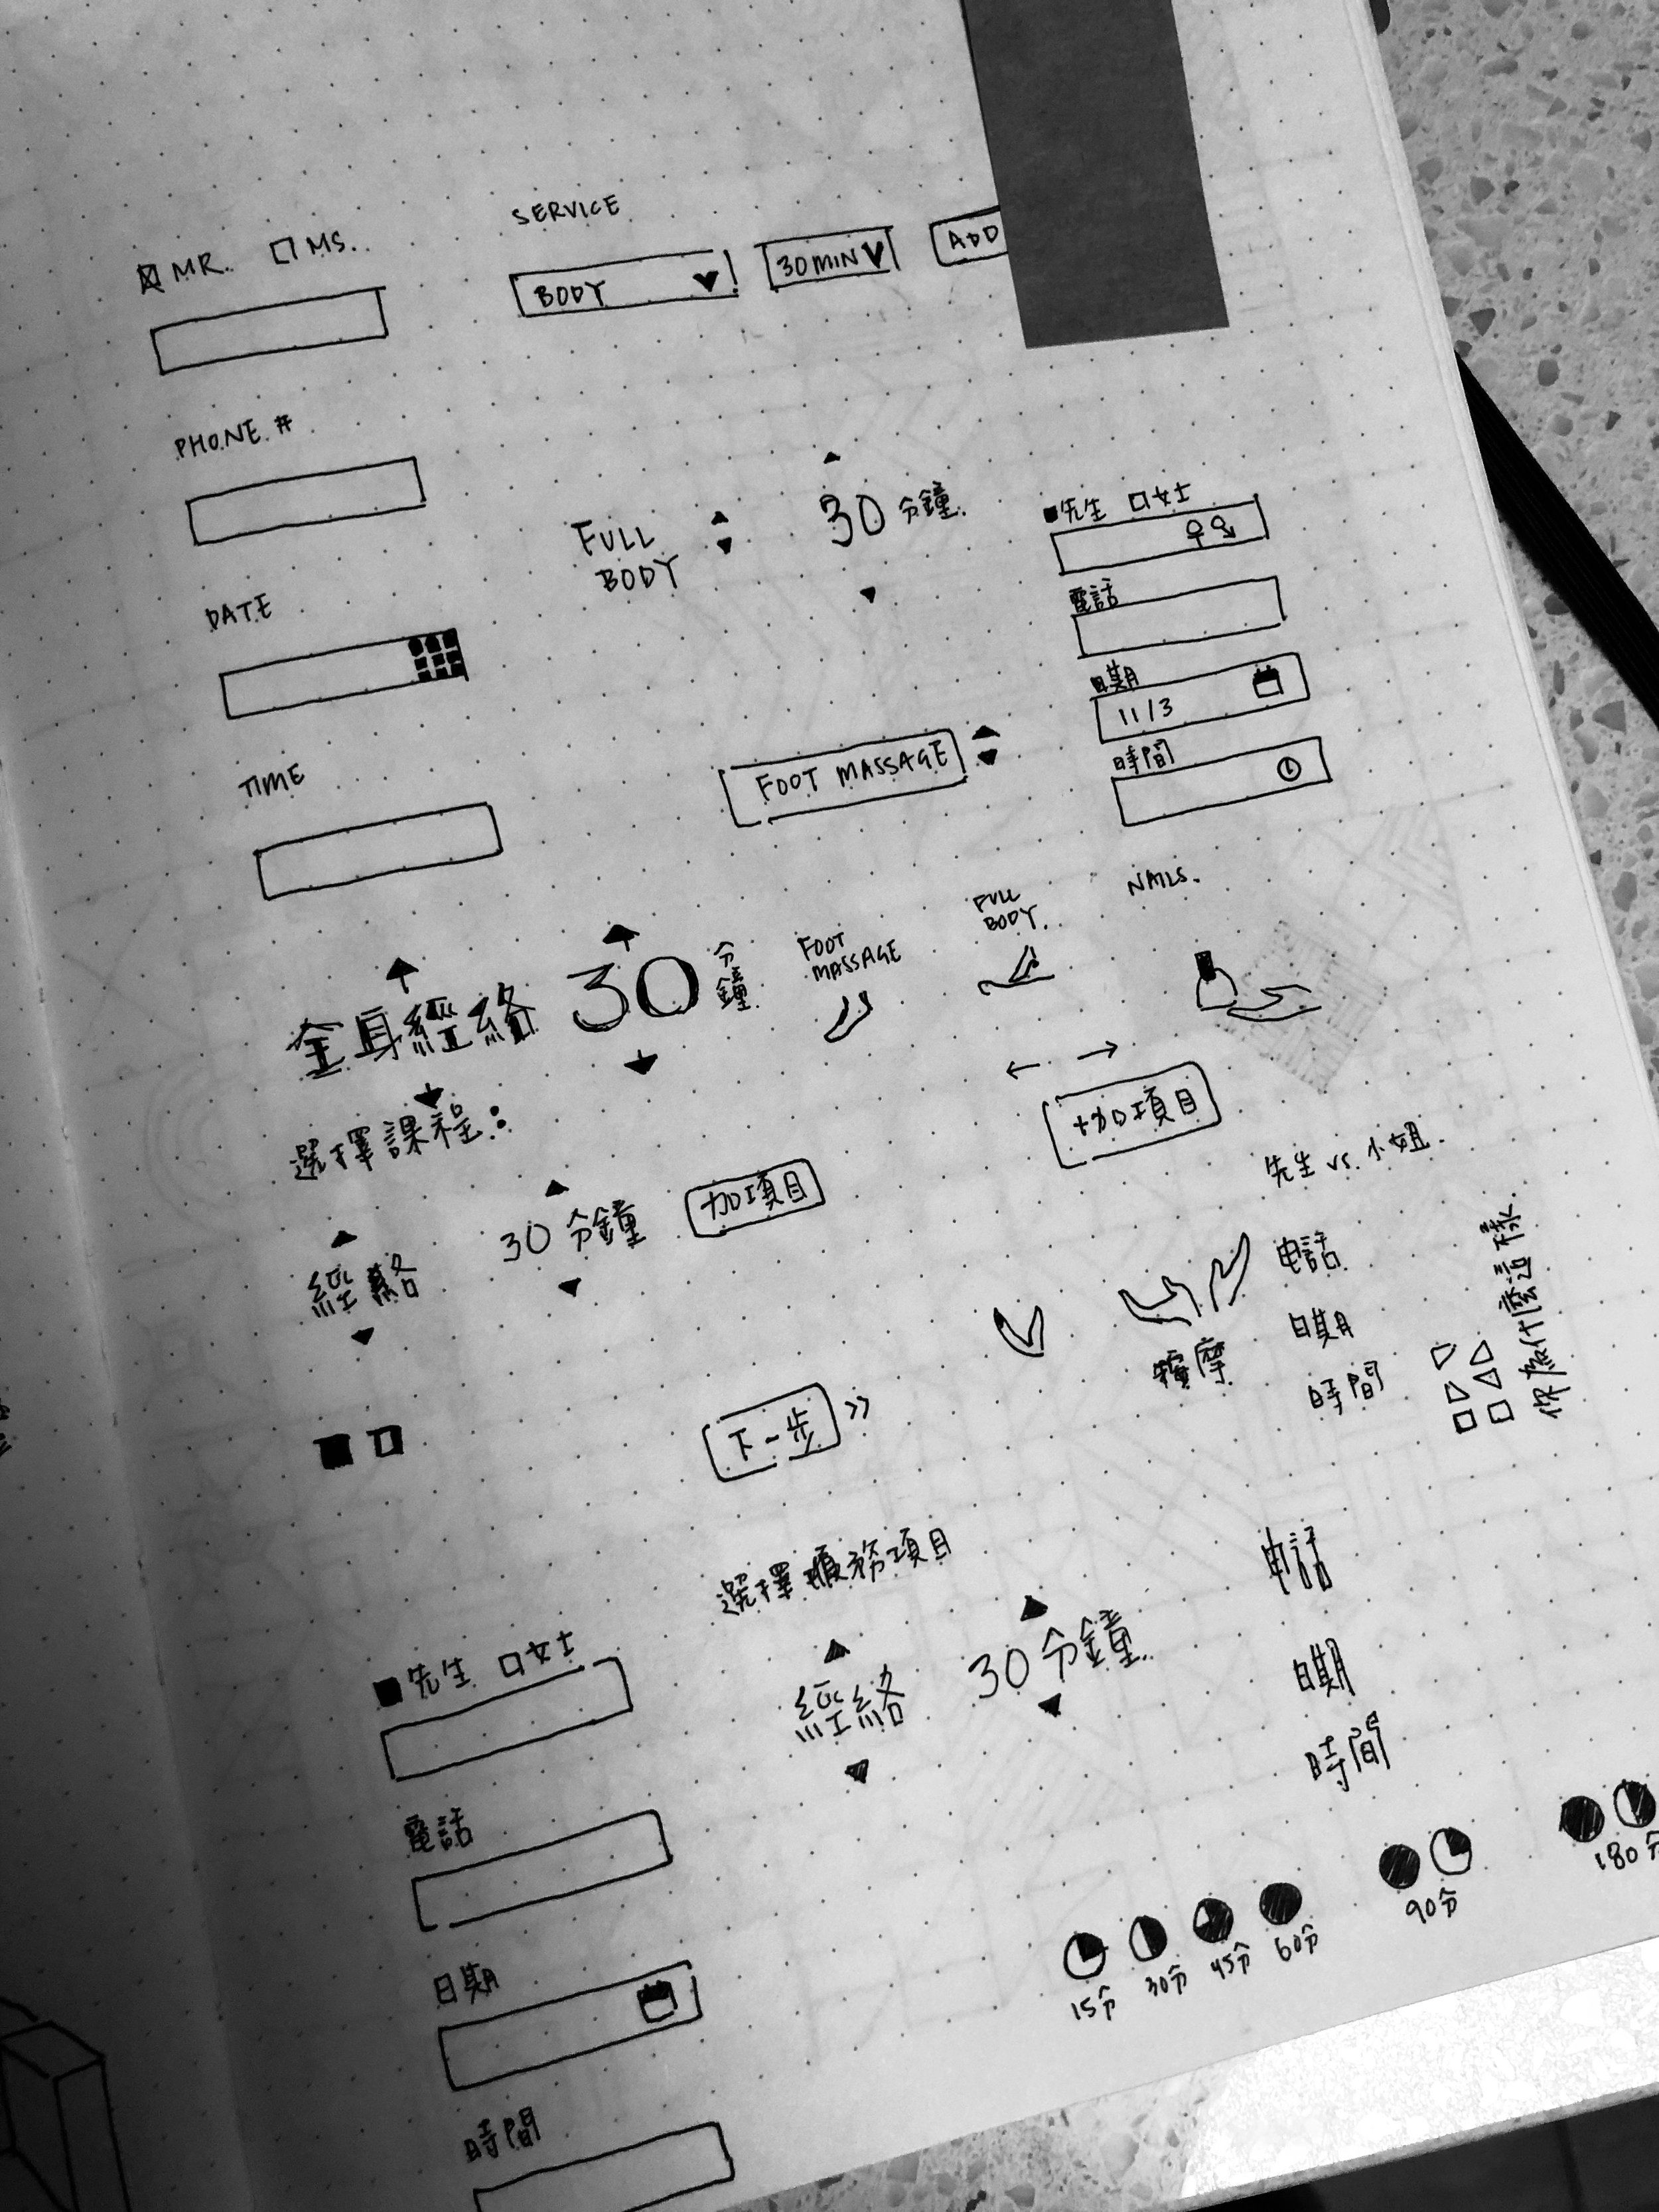 MR. MS.
SERVICE
BODY
30MIN
ADD
PHONE #
DATE
TIME
FULL
BODY
30 分鐘
先生 女士
電話
日期
11/3
時間
FOOT MASSAGE
全身經絡 30 分鐘
FOOT
MASSAGE
FULL
BODY.
NAILS.
選擇課程:
經絡
30 分鐘
加項目
+加項目
先生 vs. 小姐.
电話
日期
時間
按摩
下一步 »
選擇服務項目
經絡
30 分鐘
电話
日期
時間
先生 女士
電話
日期
時間
15分
30分
45分
60分
90分
180分